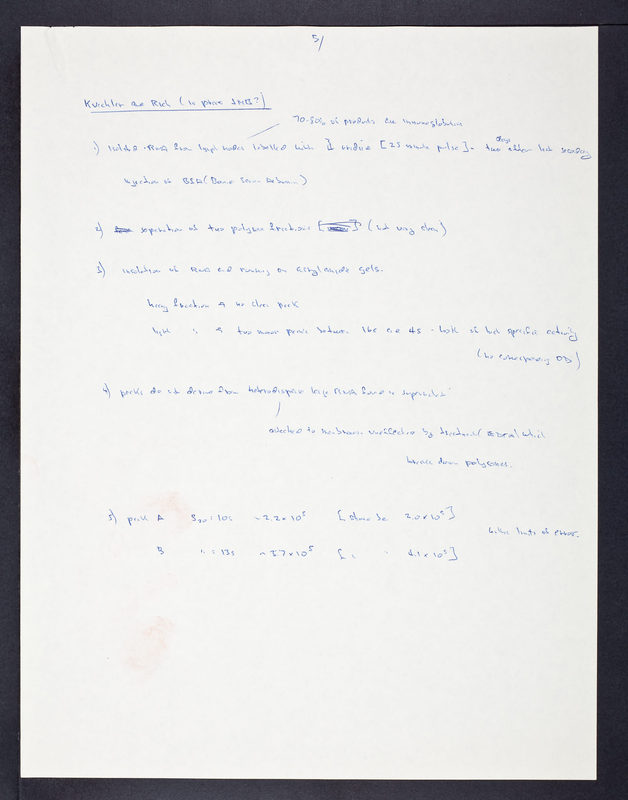 5/
Kuechler and Rich (in press JMB?)
70-80% of products are immunoglobulins
1) Isolated RNA from lymph nodes labelled with uridine [25 minute pulse] - two days after last secondary
injection of BSA (Bovine Serum Albumin)
2) separation of two polysome fractions (not very clean)
3) isolation of RNA and running on acrylamide gels.
heavy fraction no clear peak
light " two minor peaks between 16s and 4s - both of high specific activity
(no corresponding OD)
4) peaks do not derive from heterodisperse large RNA found in supernatant
attached to membrane unaffected by treatment EDTA which
breaks down polysomes.
5) peak A S20 = 10s ~ 2.2 x 10⁵ [should be 2.0 x 10⁵]
within limits of error.
B " = 13s ~ 3.7 x 10⁵ [" " 4.1 x 10⁵]